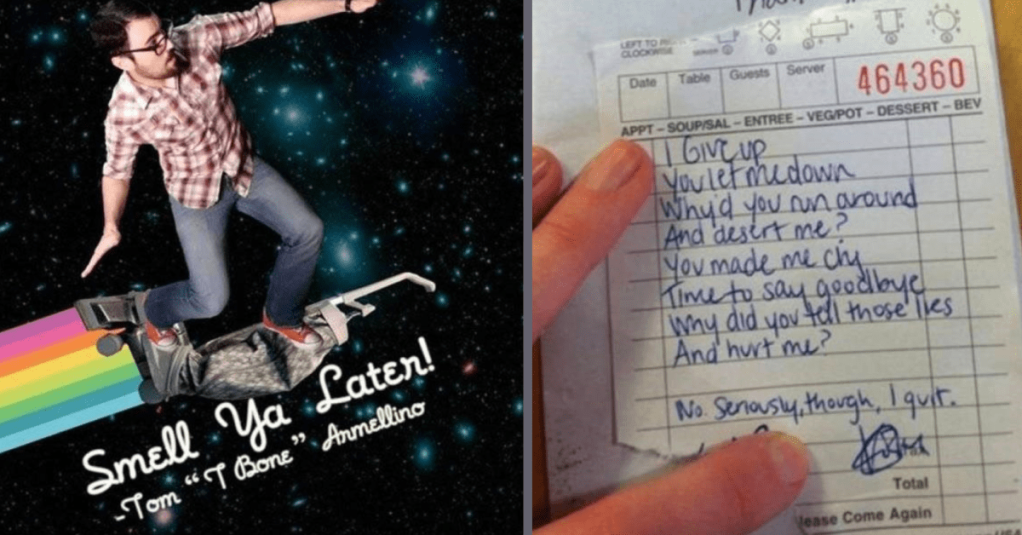 Smell Ya Later!
-Tom "T Bone" Armellino
LEFT TO
CLOCKWISE
Date Table Guests Server 464360
APPT – SOUP/SAL – ENTREE – VEG/POT – DESSERT – BEV
I Give up
You let me down
Why'd you run around
And desert me?
You made me cry
Time to say goodbye
Why did you tell those lies
And hurt me?
No. Seriously, though, I quit.
Total
lease Come Again